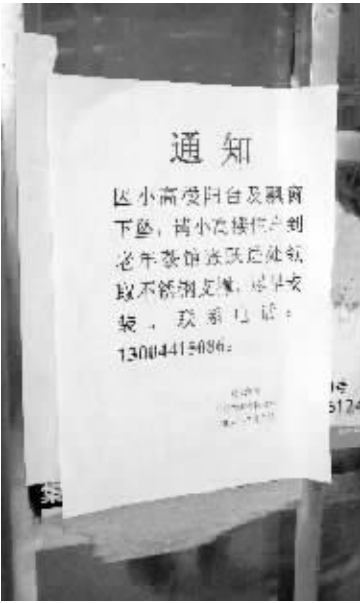 通知
因小高楼阳台及飘窗
下坠，请小高楼住户到
老年餐馆张跃进处领
取不锈钢支撑，尽早安
装。联系电话：
13004415086。